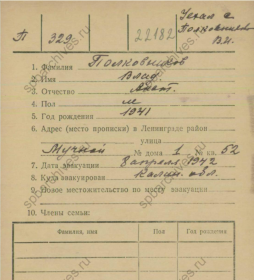 П 329 22182 Уехал с
Полковников
В.И.
1. Фамилия Полковников
2. Имя Влад.
3. Отчество Анат.
4. Пол м
5. Год рождения 1941
6. Адрес (место прописки) в Ленинграде район
улица
Мучной № дома 1 № кв. 52
7. Дата эвакуации 3 апреля 1942
8. Куда эвакуирован Калин. обл.
9. Новое местожительство по месту эвакуации
10. Члены семьи:
Фамилия, имя, отчество Пол Год рождения